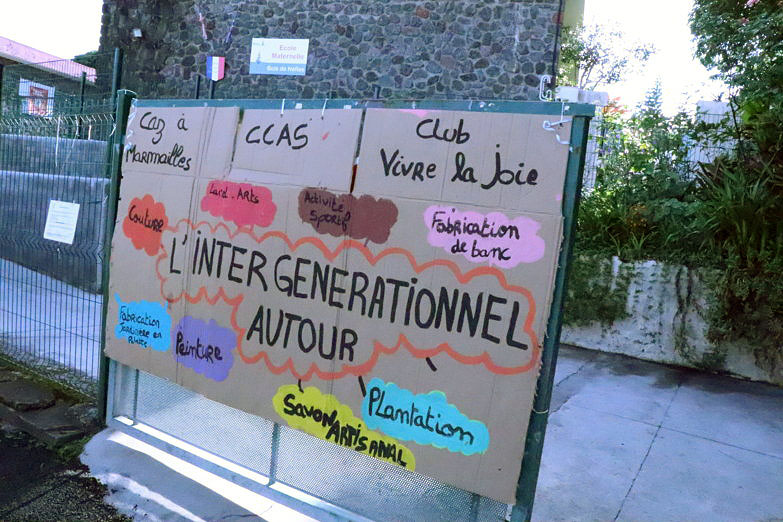 École
Maternelle
Bois de Nèfles
Caz à
Marmailles
CCAS
Club
Vivre la Joie
Land-Arts
Activité
Sportif
Couture
Fabrication
de banc
L'INTERGENERATIONNEL
AUTOUR
Fabrication
Jardinière en
Peinture
Savon
Artisanal
Plantation